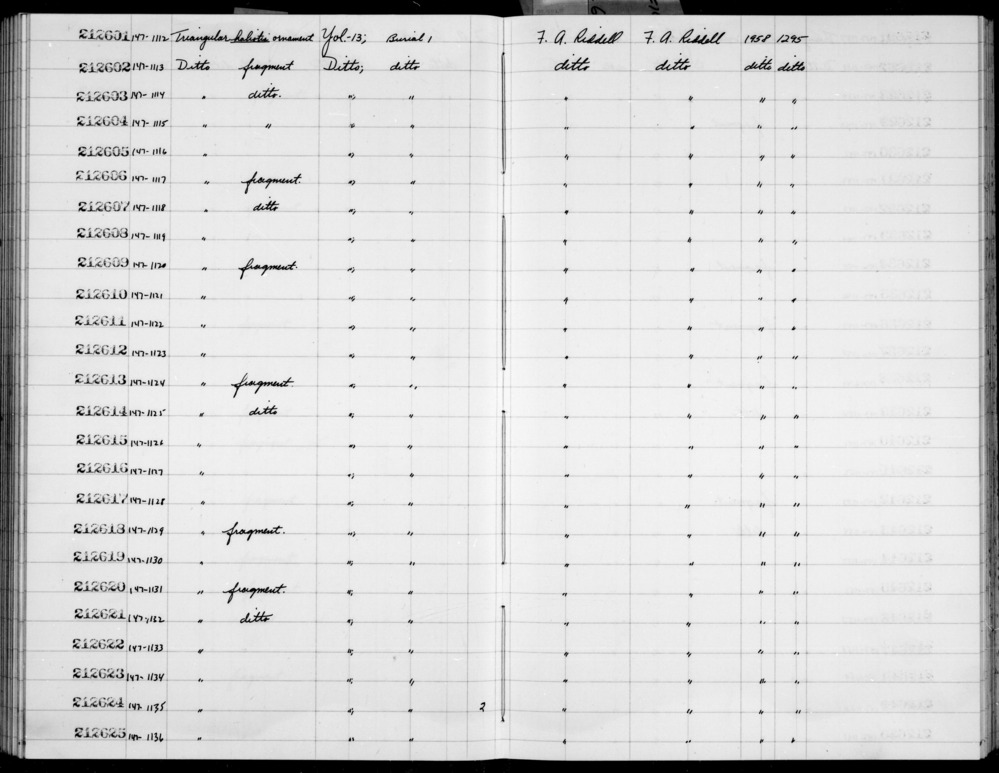 212601 147-1112 Triangular haliotis ornament Yol-13; Burial 1 F. A. Riddell F. A. Riddell 1958 1295
212602 147-1113 Ditto fragment Ditto; ditto ditto ditto ditto ditto
212603 147-1114 " ditto. "; " " " " "
212604 147-1115 " " " " " " " "
212605 147-1116 " "; " " " " "
212606 147-1117 " fragment. "; " " " " "
212607 147-1118 " ditto "; " " " " "
212608 147-1119 " "; " " " " "
212609 147-1120 " fragment. "; " " " " "
212610 147-1121 " "; " " " " "
212611 147-1122 " "; " " " " "
212612 147-1123 " "; " " " " "
212613 147-1124 " fragment "; " " " " "
212614 147-1125 " ditto "; " " " " "
212615 147-1126 " "; " " " " "
212616 147-1127 " "; " " " " "
212617 147-1128 " "; " " " " "
212618 147-1129 " fragment. "; " " " " "
212619 147-1130 " "; " " " " "
212620 147-1131 " fragment. "; " " " " "
212621 147-1132 " ditto "; " " " " "
212622 147-1133 " "; " " " " "
212623 147-1134 " "; " " " " "
212624 147-1135 " "; " 2 " " " "
212625 147-1136 " " " " " " "